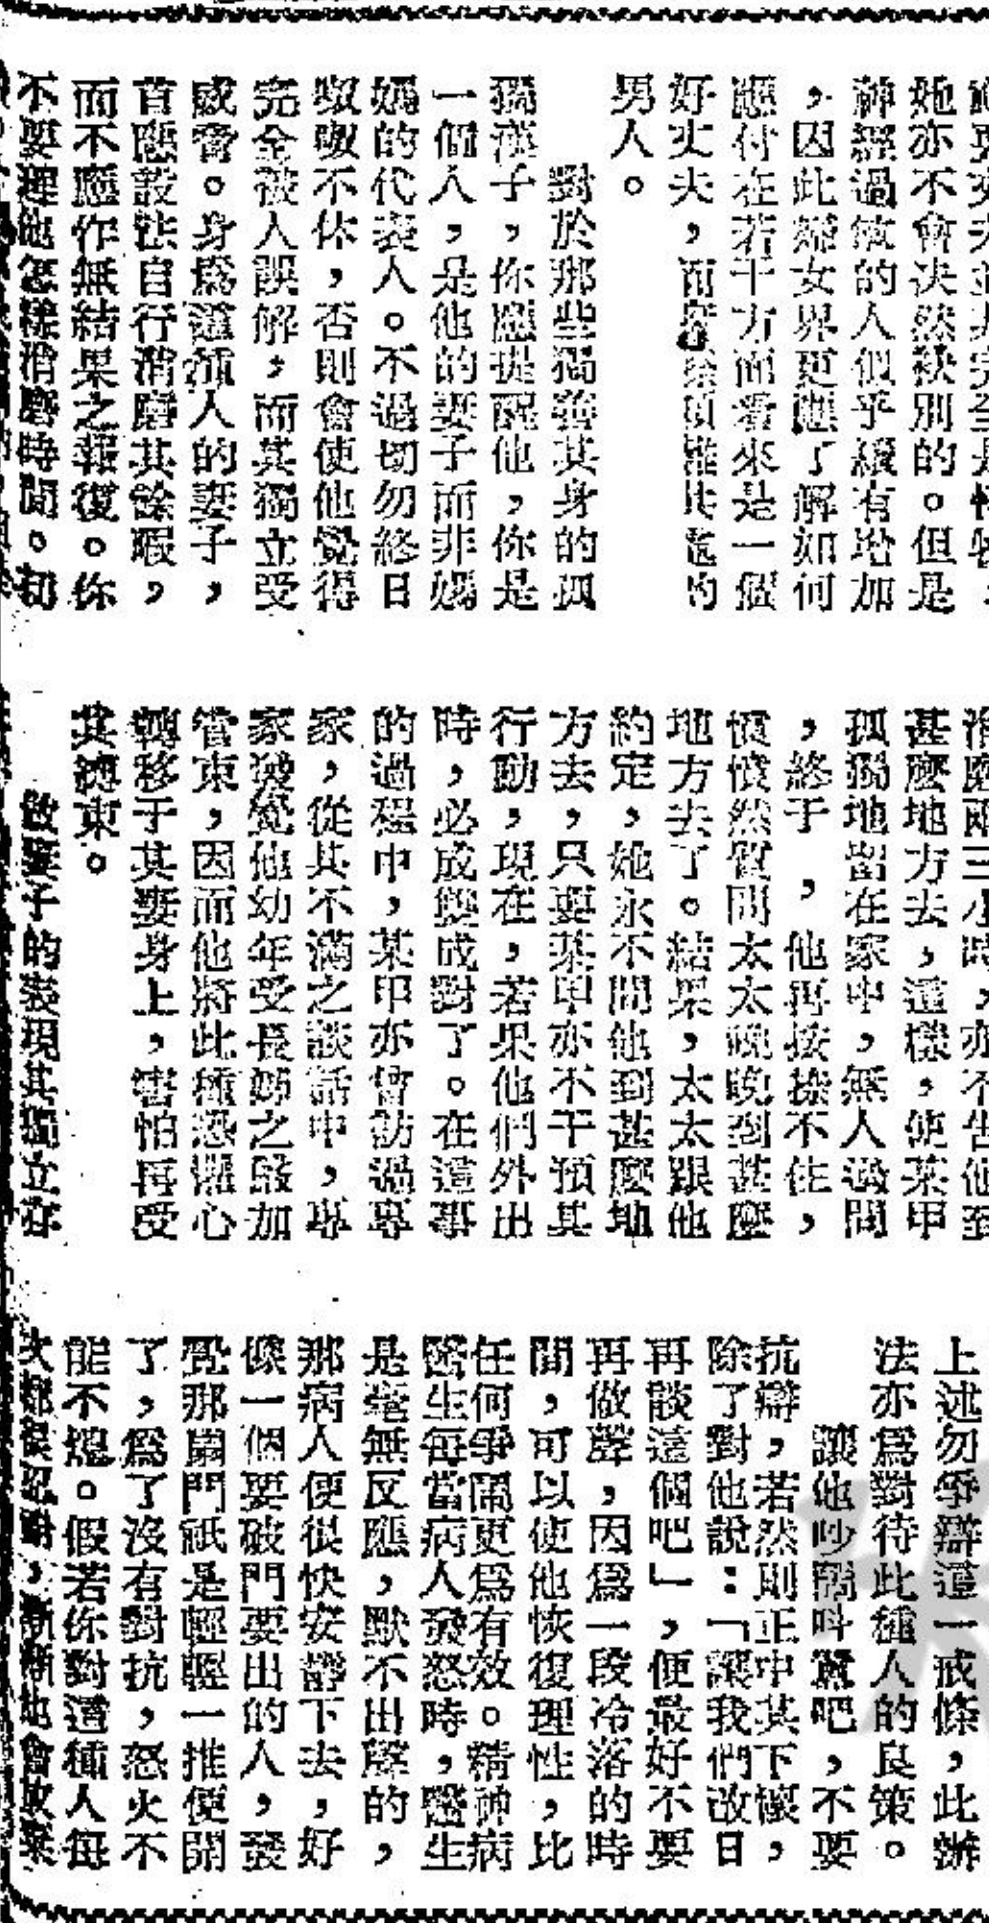 她亦不會决然袂別的。但是
神經過敏的人似乎續有增加
，因此婦女界更應了解如何
應付在若干方面看來是一個
好丈夫，而
男人。
對於那些獨善其身的孤
獨漢子，你應提醒他，你是
一個人，是他的妻子而非媽
媽的代表人。不過切勿終日
呶呶不休，否則會使他覺得
完全被人誤解，而其獨立受
威脅。身爲這種人的妻子，
首應設法自行消磨其餘暇，
而不應作無結果之報復。你
不要理他怎樣消磨時間。初
消磨兩三小時，亦不告他到
甚麼地方去，這樣，使某甲
孤獨地留在家中，無人過問
，終于，他再按捺不住，
憤憤然質問太太晚晚到甚麼
地方去了。結果，太太跟他
約定，她永不問他到甚麼地
方去，只要某甲亦不干預其
行動，現在，若果他們外出
時，必成雙成對了。在這事
的過程中，某甲亦曾訪過專
家，從其不滿之談話中，專
家發覺他幼年受長姊之嚴加
管束，因而他將此種恐懼心
轉移于其妻身上，害怕再受
其縛束。
做妻子的表現其獨立存
上述勿爭辯這一戒條，此辦
法亦爲對待此種人的良策。
讓他吵鬧叫罵吧，不要
抗辯，若然則正中其下懷，
除了對他說：「讓我們改日
再談這個吧」，便最好不要
再做聲，因爲一段冷落的時
間，可以使他恢復理性，比
任何爭鬧更爲有效。精神病
醫生每當病人發怒時，醫生
是毫無反應，默不出聲的，
那病人便很快安靜下去，好
像一個要破門要出的人，發
覺那扇門祇是輕輕一推便開
了，爲了沒有對抗，怒火不
能不熄。假若你對這種人每
次都保忍耐，漸漸他會放棄